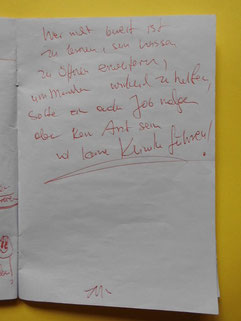 Wer nicht bereit ist
zu lernen, sein Wissen
zu öffnen erweitern,
um Menschen wirklich zu helfen,
sollte ein andern Job
aber kein Arzt sein
keine Klinik führen!